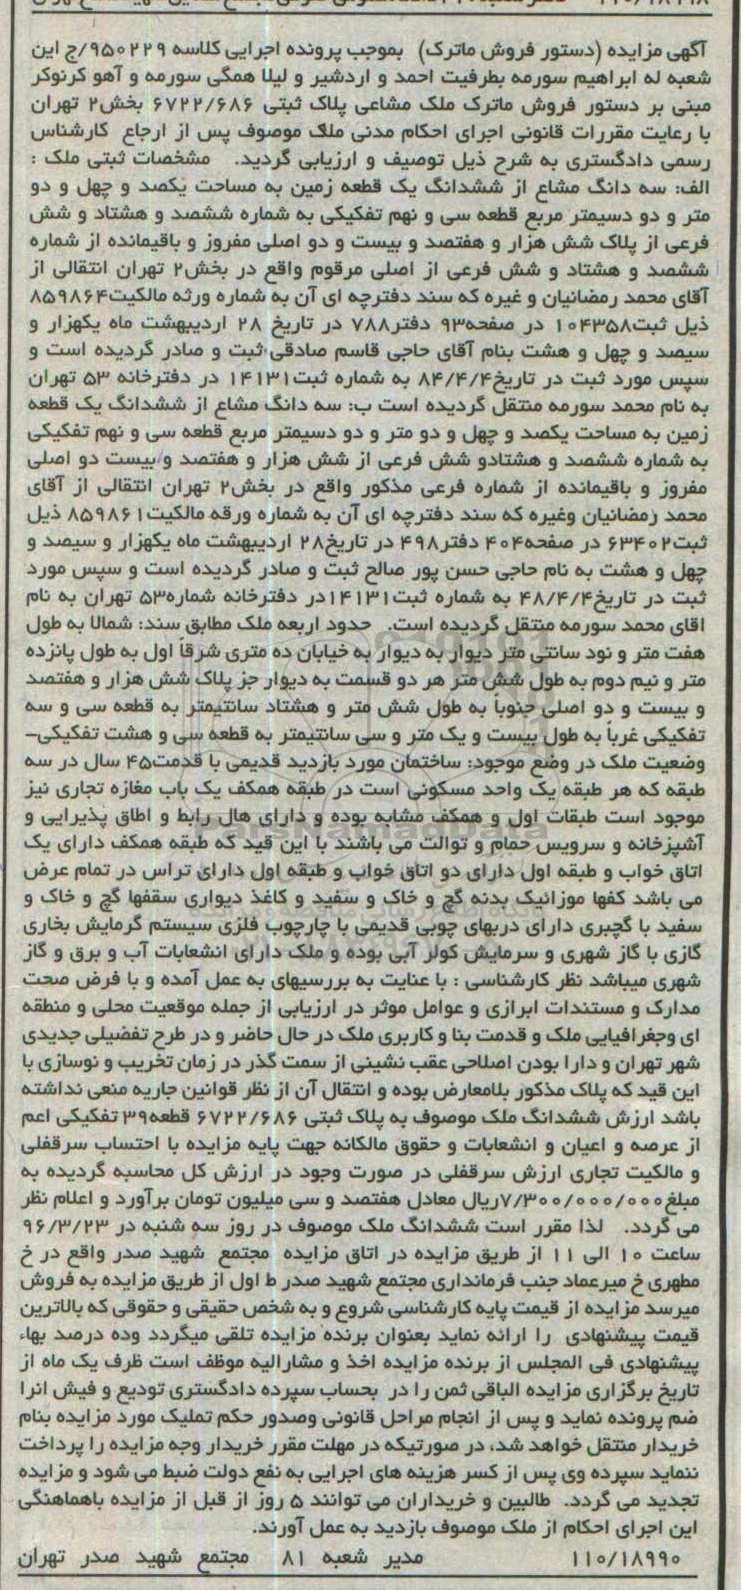 آگهی مزایده (دستور فروش ماترک) بموجب پرونده اجرایی کلاسه ۹۵۰۲۲۹/ج این
شعبه له ابراهیم سورمه بطرفیت احمد و اردشیر و لیلا همگی سورمه و آهو کرنوکر
مبنی بر دستور فروش ماترک ملک مشاعی پلاک ثبتی ۶۷۲۲/۶۸۶ بخش۲ تهران
با رعایت مقررات قانونی اجرای احکام مدنی ملک موصوف پس از ارجاع کارشناس
رسمی دادگستری به شرح ذیل توصیف و ارزیابی گردید. مشخصات ثبتی ملک :
الف: سه دانگ مشاع از ششدانگ یک قطعه زمین به مساحت یکصد و چهل و دو
متر و دو دسیمتر مربع قطعه سی و نهم تفکیکی به شماره ششصد و هشتاد و شش
فرعی از پلاک شش هزار و هفتصد و بیست و دو اصلی مفروز و باقیمانده از شماره
ششصد و هشتاد و شش فرعی از اصلی مرقوم واقع در بخش۲ تهران انتقالی از
آقای محمد رمضانیان و غیره که سند دفترچه ای آن به شماره ورثه مالکیت۸۵۹۸۶۴
ذیل ثبت۱۰۴۳۵۸ در صفحه۹۳ دفتر۷۸۸ در تاریخ ۲۸ اردیبهشت ماه یکهزار و
سیصد و چهل و هشت بنام آقای حاجی قاسم صادقی ثبت و صادر گردیده است و
سپس مورد ثبت در تاریخ۸۴/۴/۴ به شماره ثبت۱۴۱۳۱ در دفترخانه ۵۳ تهران
به نام محمد سورمه منتقل گردیده است ب: سه دانگ مشاع از ششدانگ یک قطعه
زمین به مساحت یکصد و چهل و دو متر و دو دسیمتر مربع قطعه سی و نهم تفکیکی
به شماره ششصد و هشتادو شش فرعی از شش هزار و هفتصد و بیست دو اصلی
مفروز و باقیمانده از شماره فرعی مذکور واقع در بخش۲ تهران انتقالی از آقای
محمد رمضانیان وغیره که سند دفترچه ای آن به شماره ورقه مالکیت۸۵۹۸۶۱ ذیل
ثبت۶۳۴۰۲ در صفحه۴۰۴ دفتر۴۹۸ در تاریخ۲۸ اردیبهشت ماه یکهزار و سیصد و
چهل و هشت به نام حاجی حسن پور صالح ثبت و صادر گردیده است و سپس مورد
ثبت در تاریخ۴۸/۴/۴ به شماره ثبت۱۴۱۳۱در دفترخانه شماره۵۳ تهران به نام
اقای محمد سورمه منتقل گردیده است. حدود اربعه ملک مطابق سند: شمالا به طول
هفت متر و نود سانتی متر دیوار به دیوار به خیابان ده متری شرقاً اول به طول پانزده
متر و نیم دوم به طول شش متر هر دو قسمت به دیوار جز پلاک شش هزار و هفتصد
و بیست و دو اصلی جنوباً به طول شش متر و هشتاد سانتیمتر به قطعه سی و سه
تفکیکی غرباً به طول بیست و یک متر و سی سانتیمتر به قطعه سی و هشت تفکیکی–
وضعیت ملک در وضع موجود: ساختمان مورد بازدید قدیمی با قدمت۴۵ سال در سه
طبقه که هر طبقه یک واحد مسکونی است در طبقه همکف یک باب مغازه تجاری نیز
موجود است طبقات اول و همکف مشابه بوده و دارای هال رابط و اطاق پذیرایی و
آشپزخانه و سرویس حمام و توالت می باشند با این قید که طبقه همکف دارای یک
اتاق خواب و طبقه اول دارای دو اتاق خواب و طبقه اول دارای تراس در تمام عرض
می باشد کفها موزائیک بدنه گچ و خاک و سفید و کاغذ دیواری سقفها گچ و خاک و
سفید با گچبری دارای دربهای چوبی قدیمی با چارچوب فلزی سیستم گرمایش بخاری
گازی با گاز شهری و سرمایش کولر آبی بوده و ملک دارای انشعابات آب و برق و گاز
شهری میباشد نظر کارشناسی : با عنایت به بررسیهای به عمل آمده و با فرض صحت
مدارک و مستندات ابرازی و عوامل موثر در ارزیابی از جمله موقعیت محلی و منطقه
ای وجغرافیایی ملک و قدمت بنا و کاربری ملک در حال حاضر و در طرح تفضیلی جدیدی
شهر تهران و دارا بودن اصلاحی عقب نشینی از سمت گذر در زمان تخریب و نوسازی با
این قید که پلاک مذکور بلامعارض بوده و انتقال آن از نظر قوانین جاریه منعی نداشته
باشد ارزش ششدانگ ملک موصوف به پلاک ثبتی ۶۷۲۲/۶۸۶ قطعه۳۹ تفکیکی اعم
از عرصه و اعیان و انشعابات و حقوق مالکانه جهت پایه مزایده با احتساب سرقفلی
و مالکیت تجاری ارزش سرقفلی در صورت وجود در ارزش کل محاسبه گردیده به
مبلغ۷/۳۰۰/۰۰۰/۰۰۰ریال معادل هفتصد و سی میلیون تومان برآورد و اعلام نظر
می گردد. لذا مقرر است ششدانگ ملک موصوف در روز سه شنبه در ۹۶/۳/۲۳
ساعت ۱۰ الی ۱۱ از طریق مزایده در اتاق مزایده مجتمع شهید صدر واقع در خ
مطهری خ میرعماد جنب فرمانداری مجتمع شهید صدر ط اول از طریق مزایده به فروش
میرسد مزایده از قیمت پایه کارشناسی شروع و به شخص حقیقی و حقوقی که بالاترین
قیمت پیشنهادی را ارائه نماید بعنوان برنده مزایده تلقی میگردد وده درصد بهاء
پیشنهادی فی المجلس از برنده مزایده اخذ و مشارالیه موظف است ظرف یک ماه از
تاریخ برگزاری مزایده الباقی ثمن را در بحساب سپرده دادگستری تودیع و فیش انرا
ضم پرونده نماید و پس از انجام مراحل قانونی وصدور حکم تملیک مورد مزایده بنام
خریدار منتقل خواهد شد، در صورتیکه در مهلت مقرر خریدار وجه مزایده را پرداخت
ننماید سپرده وی پس از کسر هزینه های اجرایی به نفع دولت ضبط می شود و مزایده
تجدید می گردد. طالبین و خریداران می توانند ۵ روز از قبل از مزایده باهماهنگی
این اجرای احکام از ملک موصوف بازدید به عمل آورند.
۱۱۰/۱۸۹۹۰ مدیر شعبه ۸۱ مجتمع شهید صدر تهران
ParsNamadData